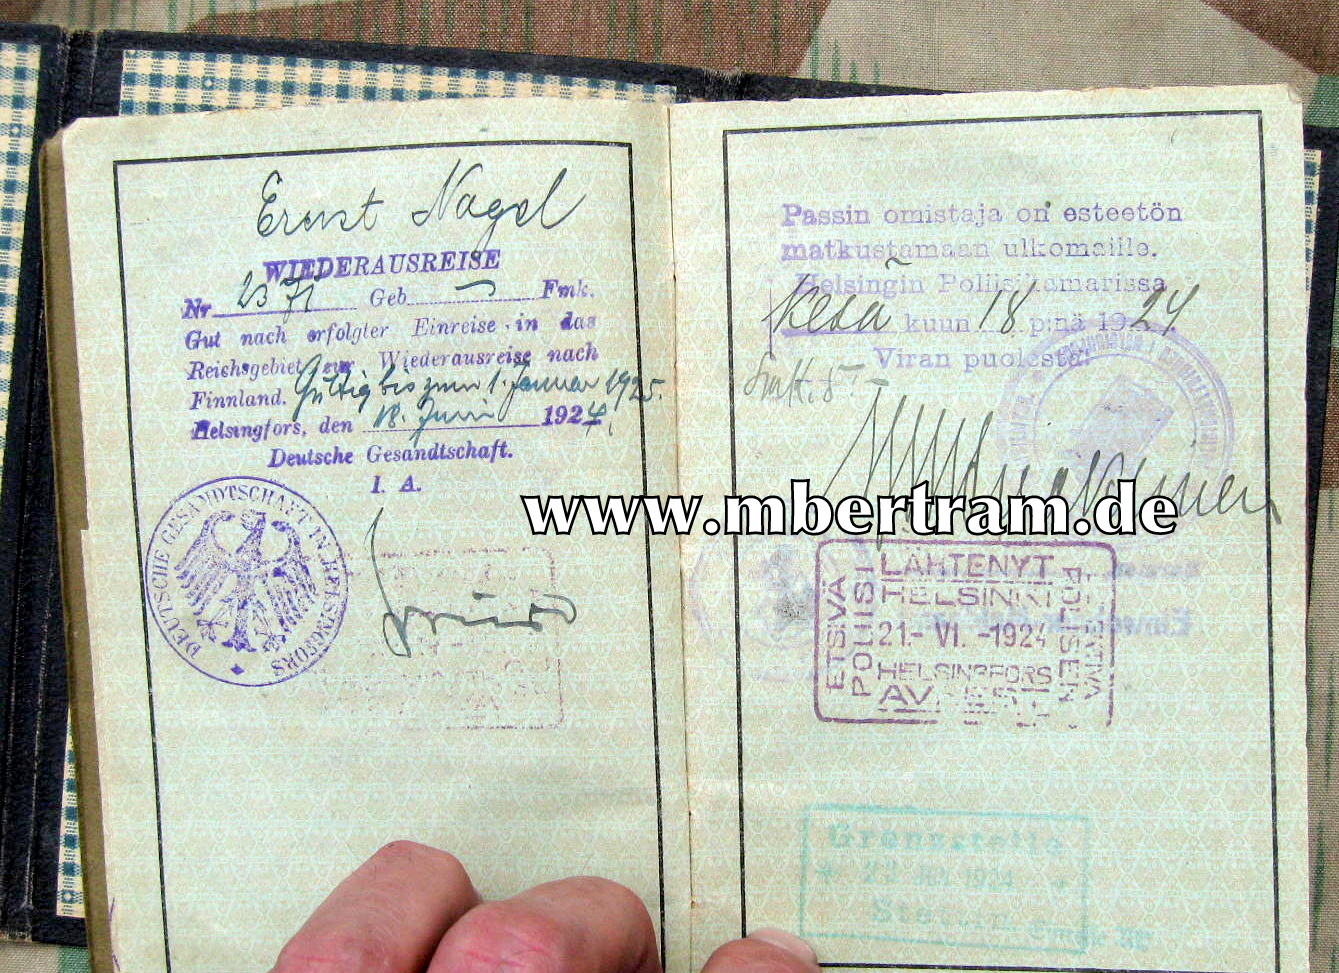 Ernst Nagel
WIEDERAUSREISE
Nr 2371 Geb. Fmk.
Gut nach erfolgter Einreise in das
Reichsgebiet zur Wiederausreise nach
Finnland. Gültig bis zum 1. Januar 1925.
Helsingfors, den 18. Juni 1924.
Deutsche Gesandtschaft.
I. A.
DEUTSCHE GESANDTSCHAFT IN HELSINGFORS
Passin omistaja on esteetön
matkustamaan ulkomaille.
Helsingin Poliisikamarissa
Kesä kuun 18 p:nä 1924.
Viran puolesta:
Smk. 5.-
www.mbertram.de
ETSIVÄ
POLIISI
LÄHTENYT
HELSINKI
21.-VI.-1924
HELSINGFORS
Grenzstelle
1924
Stettin